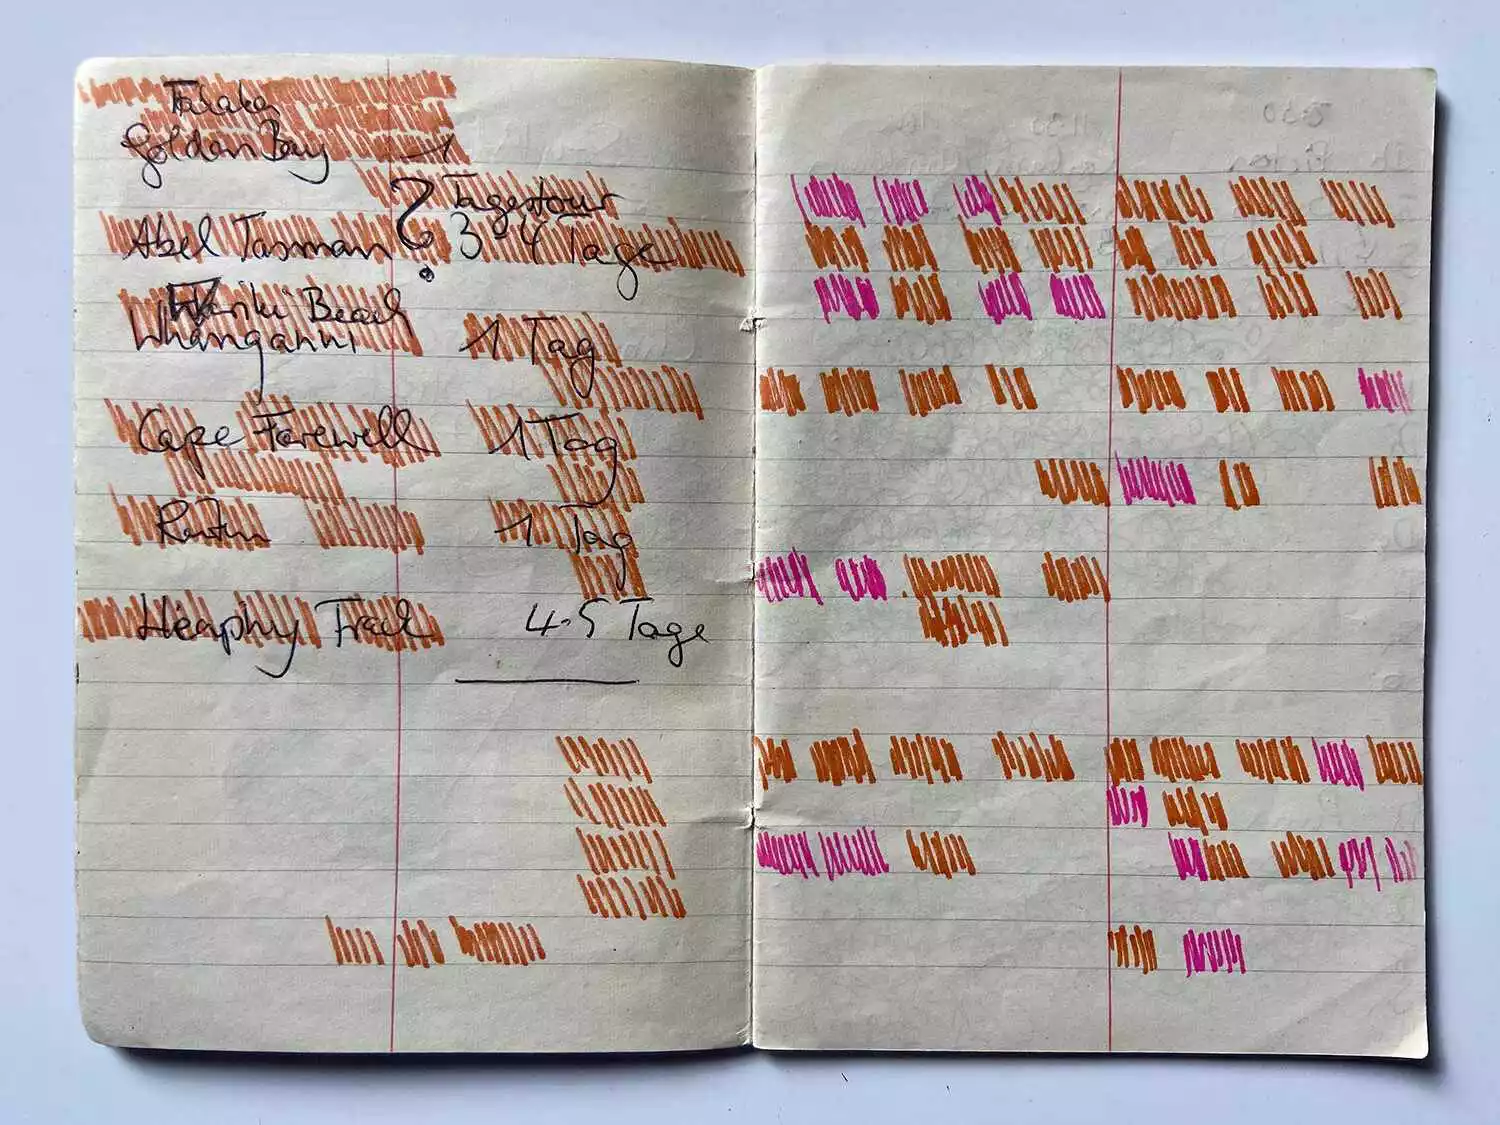 Takaka
Golden Bay 1
? Tagestour
Abel Tasman 3-4 Tage
Wariki Beach
Whanganui 1 Tag
Cape Farewell 1 Tag
1 Tag
Heaphy Track 4-5 Tage